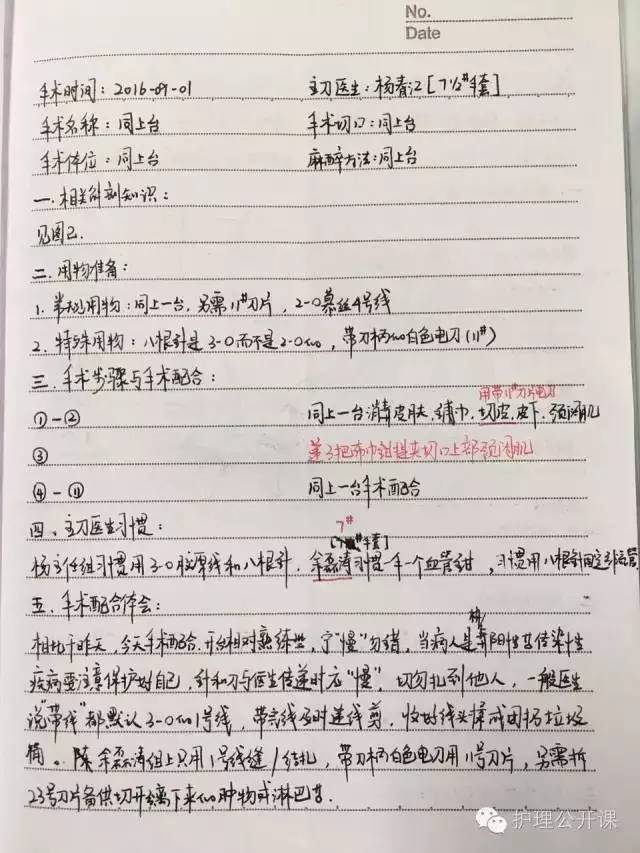 No.
Date
手术时间：2016-09-01 主刀医生：杨春江[7 1/2#手套]
手术名称：同上台 手术切口：同上台
手术体位：同上台 麻醉方法：同上台
一.相关解剖知识：
见图2.
二.用物准备：
1.常规用物：同上一台，另需11#刀片，2-0慕丝4号线
2.特殊用物：八根针是3-0而不是2-0的，带刀柄的白色电刀(11#)
三.手术步骤与手术配合：
用带11#刀片电刀
①-② 同上一台消毒皮肤、铺巾、切皮、皮下、颈阔肌
③ 要3把布巾钳提夹切口上部颈阔肌
④-⑪ 同上一台手术配合
四、主刀医生习惯：
7#
手套]
杨主任组习惯用3-0胶原线和八根针，余磊涛习惯一年一个血管钳，习惯用八根针固定引流管
五.手术配合体会：
相比于昨天，今天手术配合，开台相对熟练些，宁"慢"勿错，当病人是阳性等传染性
疾病要注意保护好自己，针和刀与医生传递时应"慢"，切勿扎到他人，一般医生
说"带线"都默认3-0的1号线，带完线及时递线剪，收好线头揉成团扔垃圾
桶。陈余磊涛组上只用1号线缝/结扎，带刀柄白色电刀用11号刀片，另需拆
23号刀片备供切开离下来的肿物或淋巴等.
护理公开课